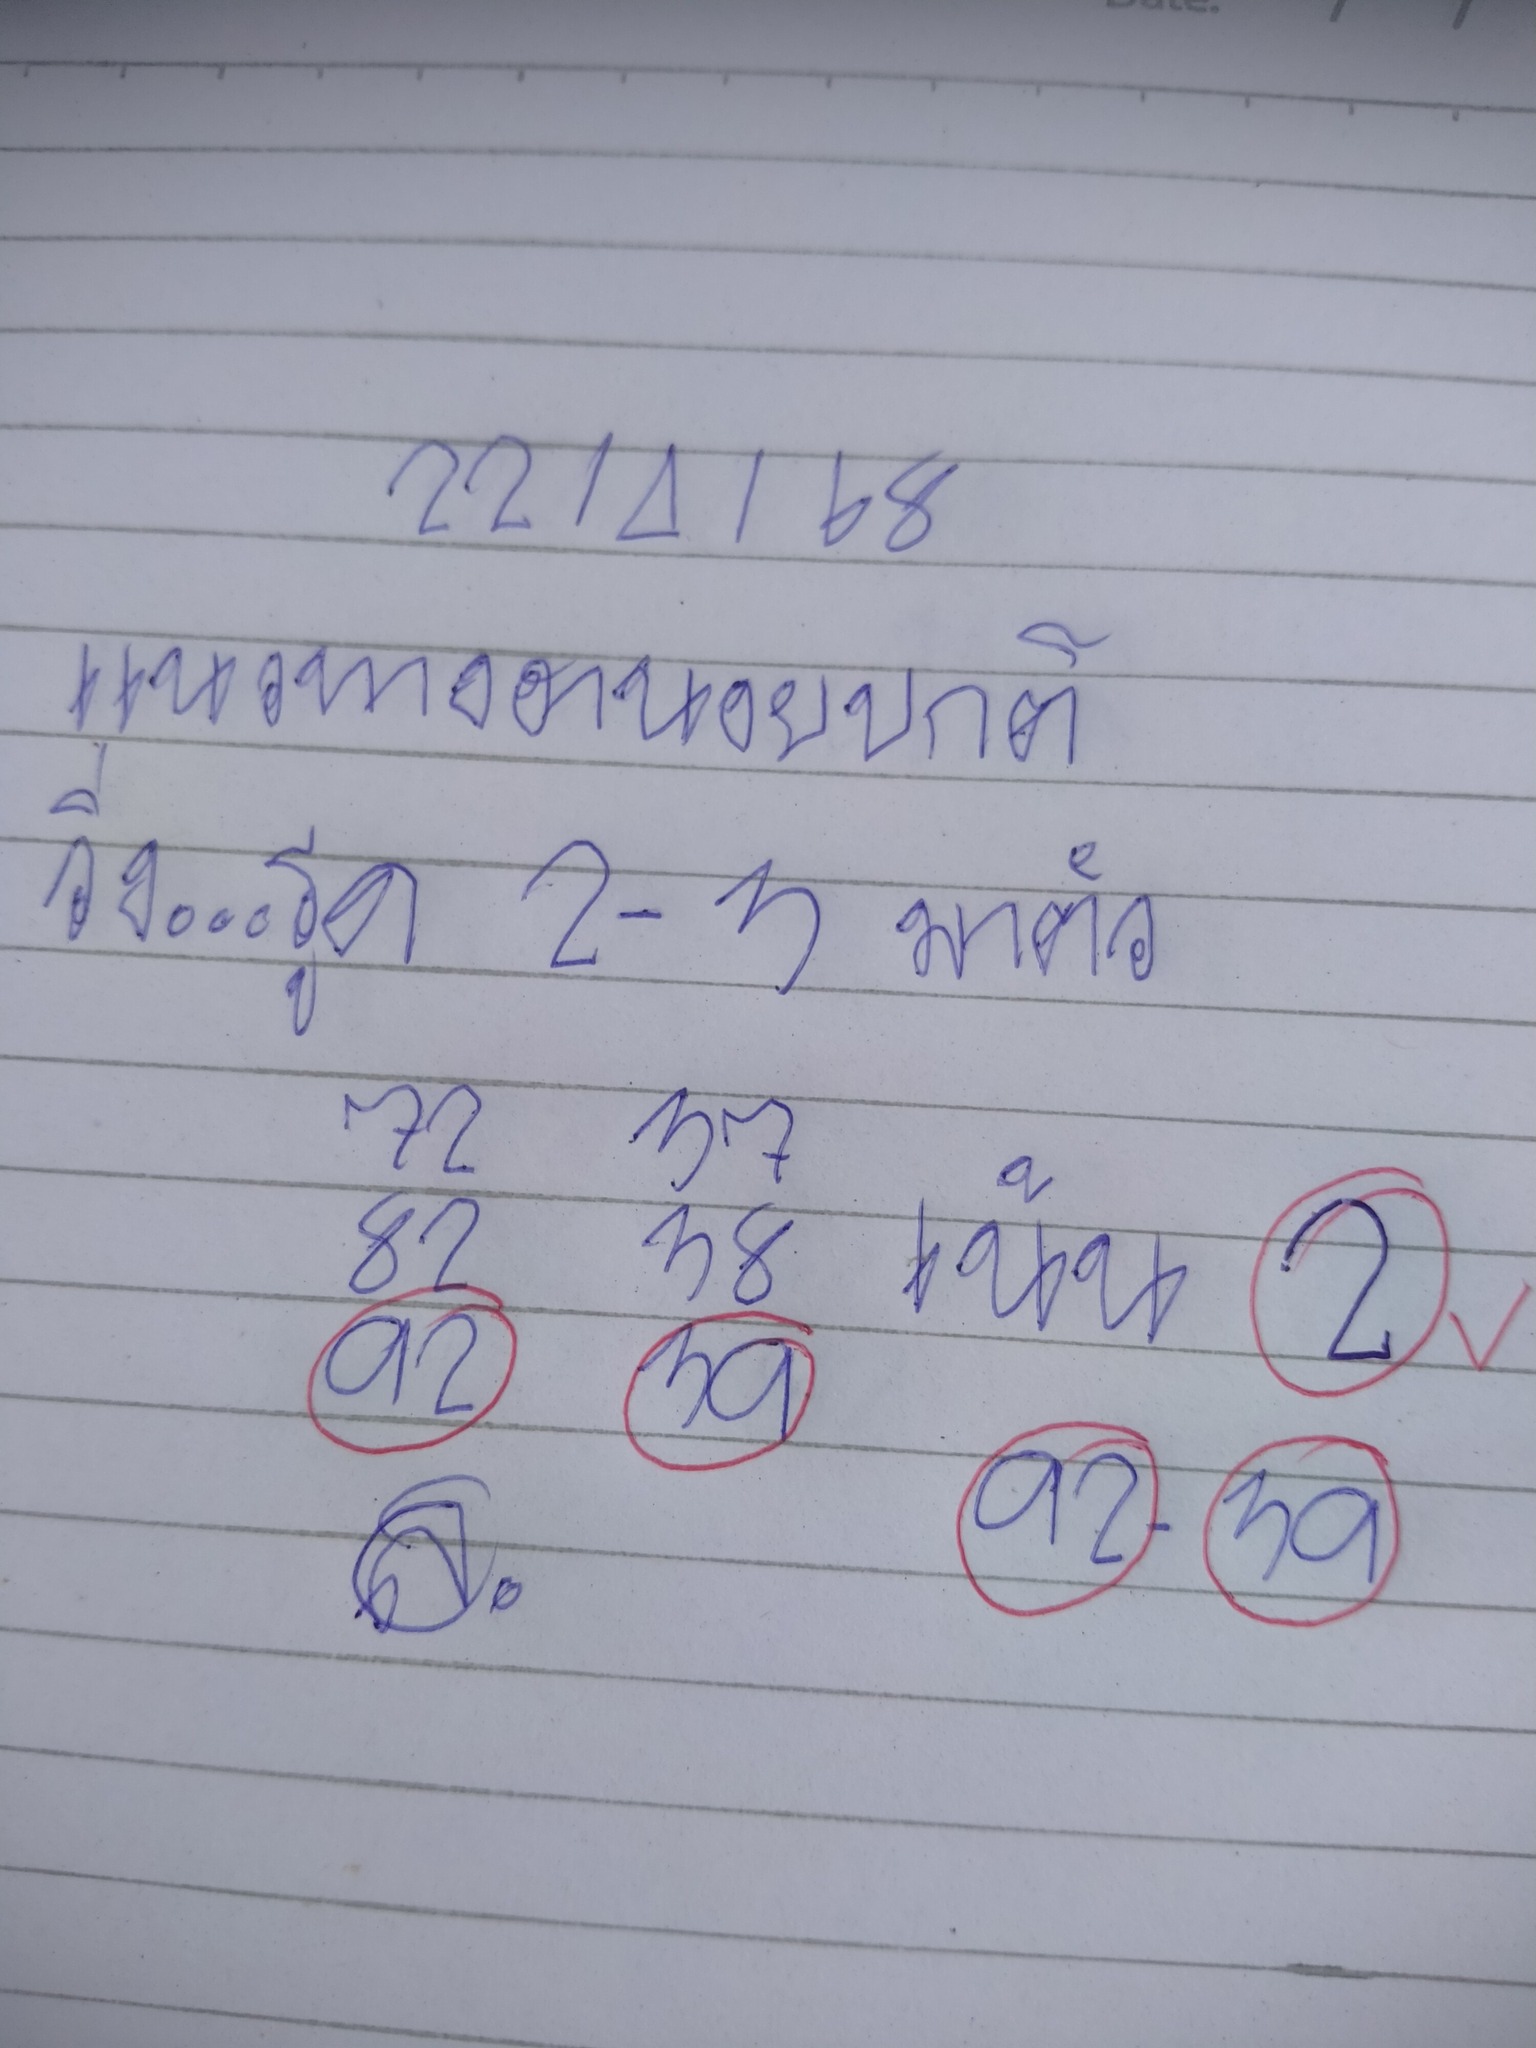 Date. / /
22/4/68
แนวทางฮานอยปกติ
วิ่ง...รูด 2-3 มาตัว
72 37
82 38 เน้น 2
92 39
92-39